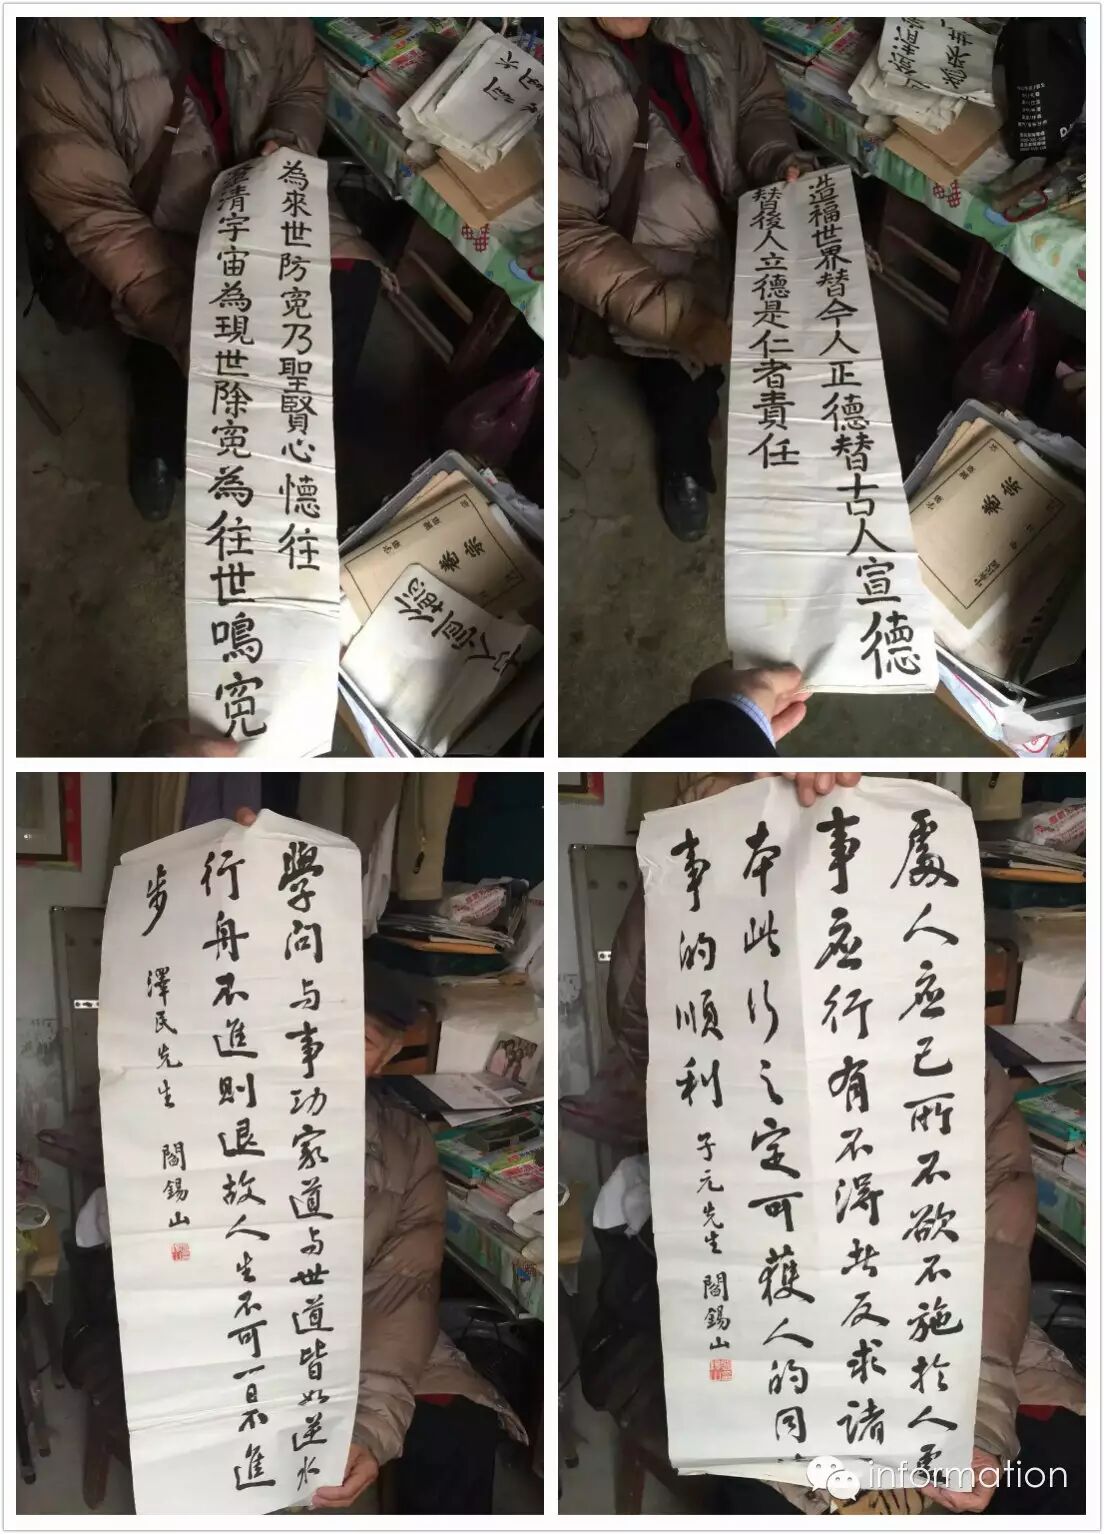 為來世防寃乃聖賢心往
澄清宇宙為現世除寃為往世鳴寃
造福世界替今人正德替古人宣德
替後人立德是仁者責任
學問与事功家道与世道皆如逆水
行舟不進則退故人生不可一日不進
步 澤民先生 閻錫山
處人应己所不欲不施於人處
事应行有不得者反求諸
本此行之定可獲人的同
事的順利 子元先生 閻錫山
information